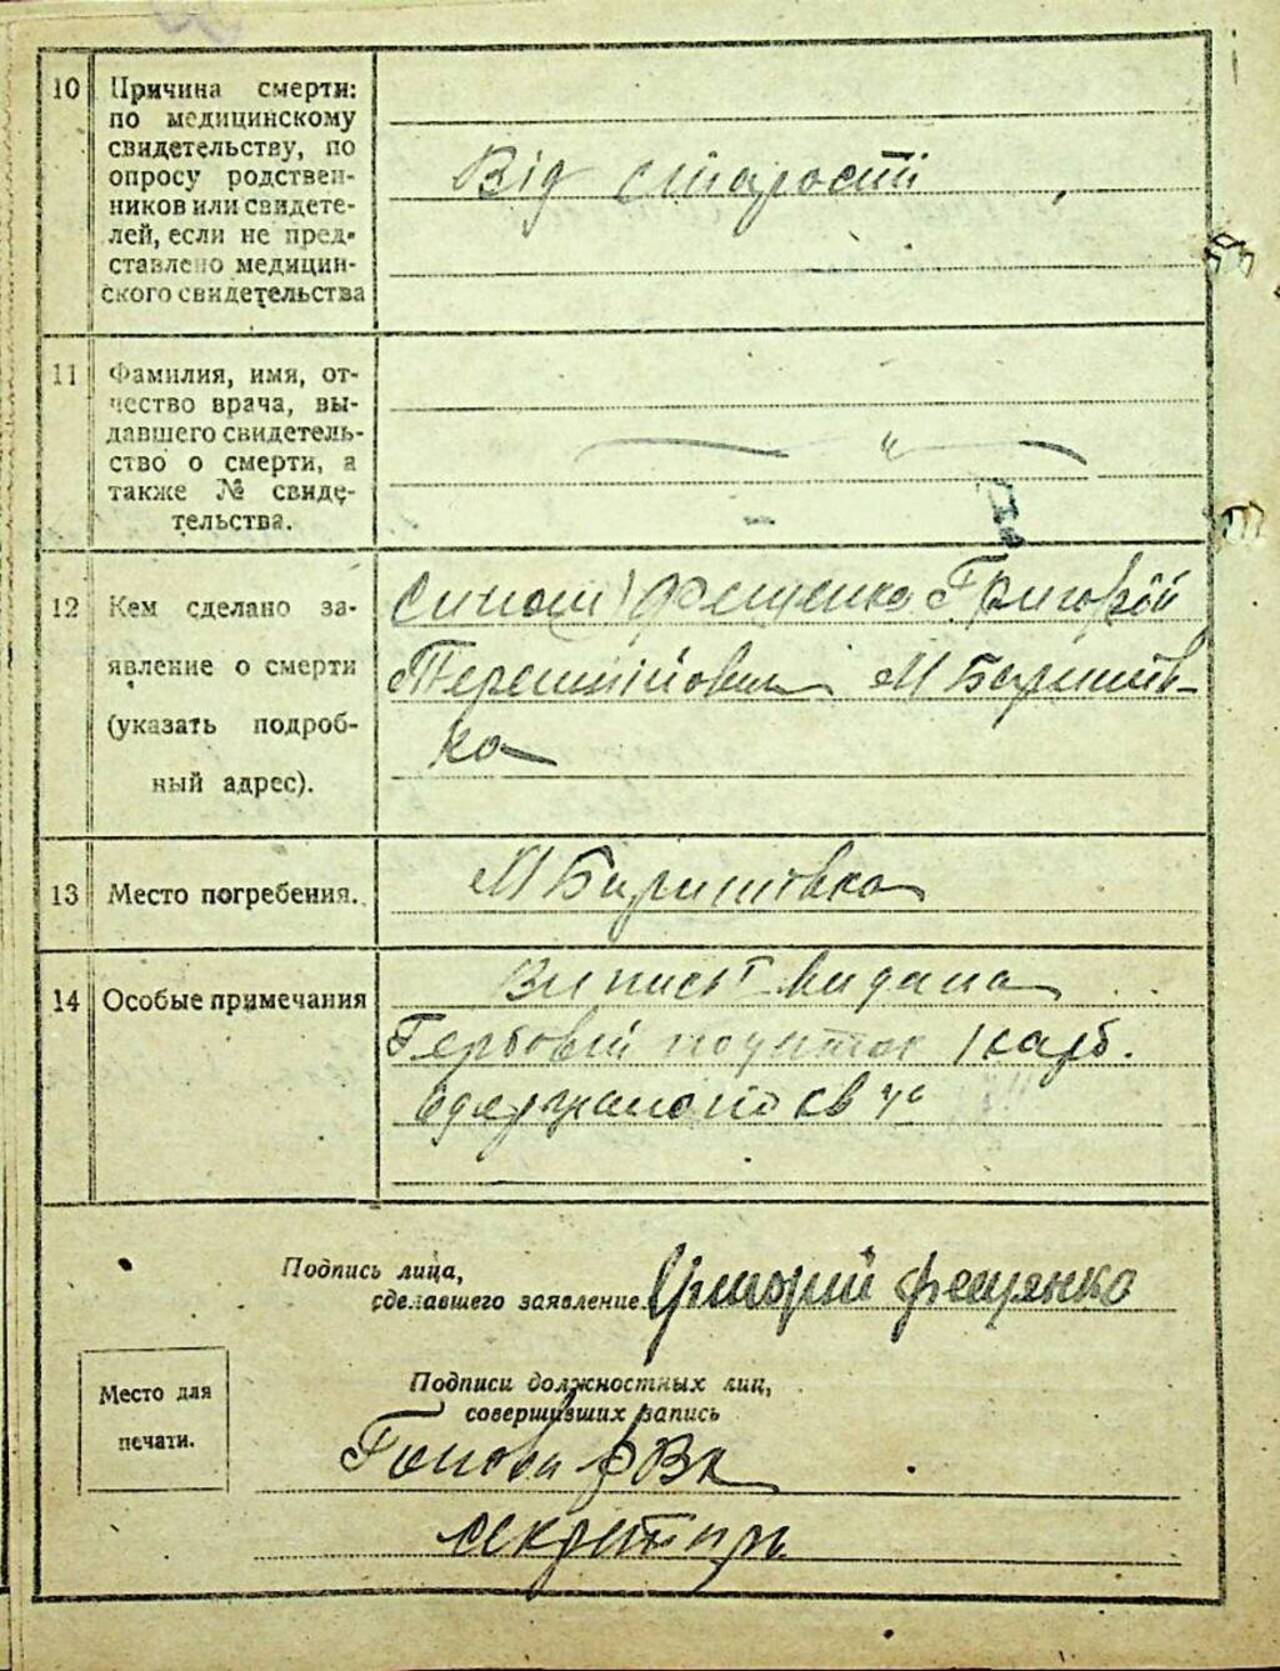 10 Причина смерти:
по медицинскому
свидетельству, по
опросу родствен-
ников или свидете-
лей, если не пред-
ставлено медицин-
ского свидетельства
Від старості
11 Фамилия, имя, от-
чество врача, вы-
давшего свидетель-
ство о смерти, а
также № свиде-
тельства.
— " —
12 Кем сделано за-
явление о смерти
(указать подроб-
ный адрес).
Сином Фещенко Григорій
М Баришів-
ка
13 Место погребения.
М Баришовка
14 Особые примечания
Випись видана
Гербовий 1 карб.
Подпись лица,
сделавшего заявление Григорий Фещенко
Место для
печати.
Подписи должностных лиц,
совершивших запись
Голова
секретарь